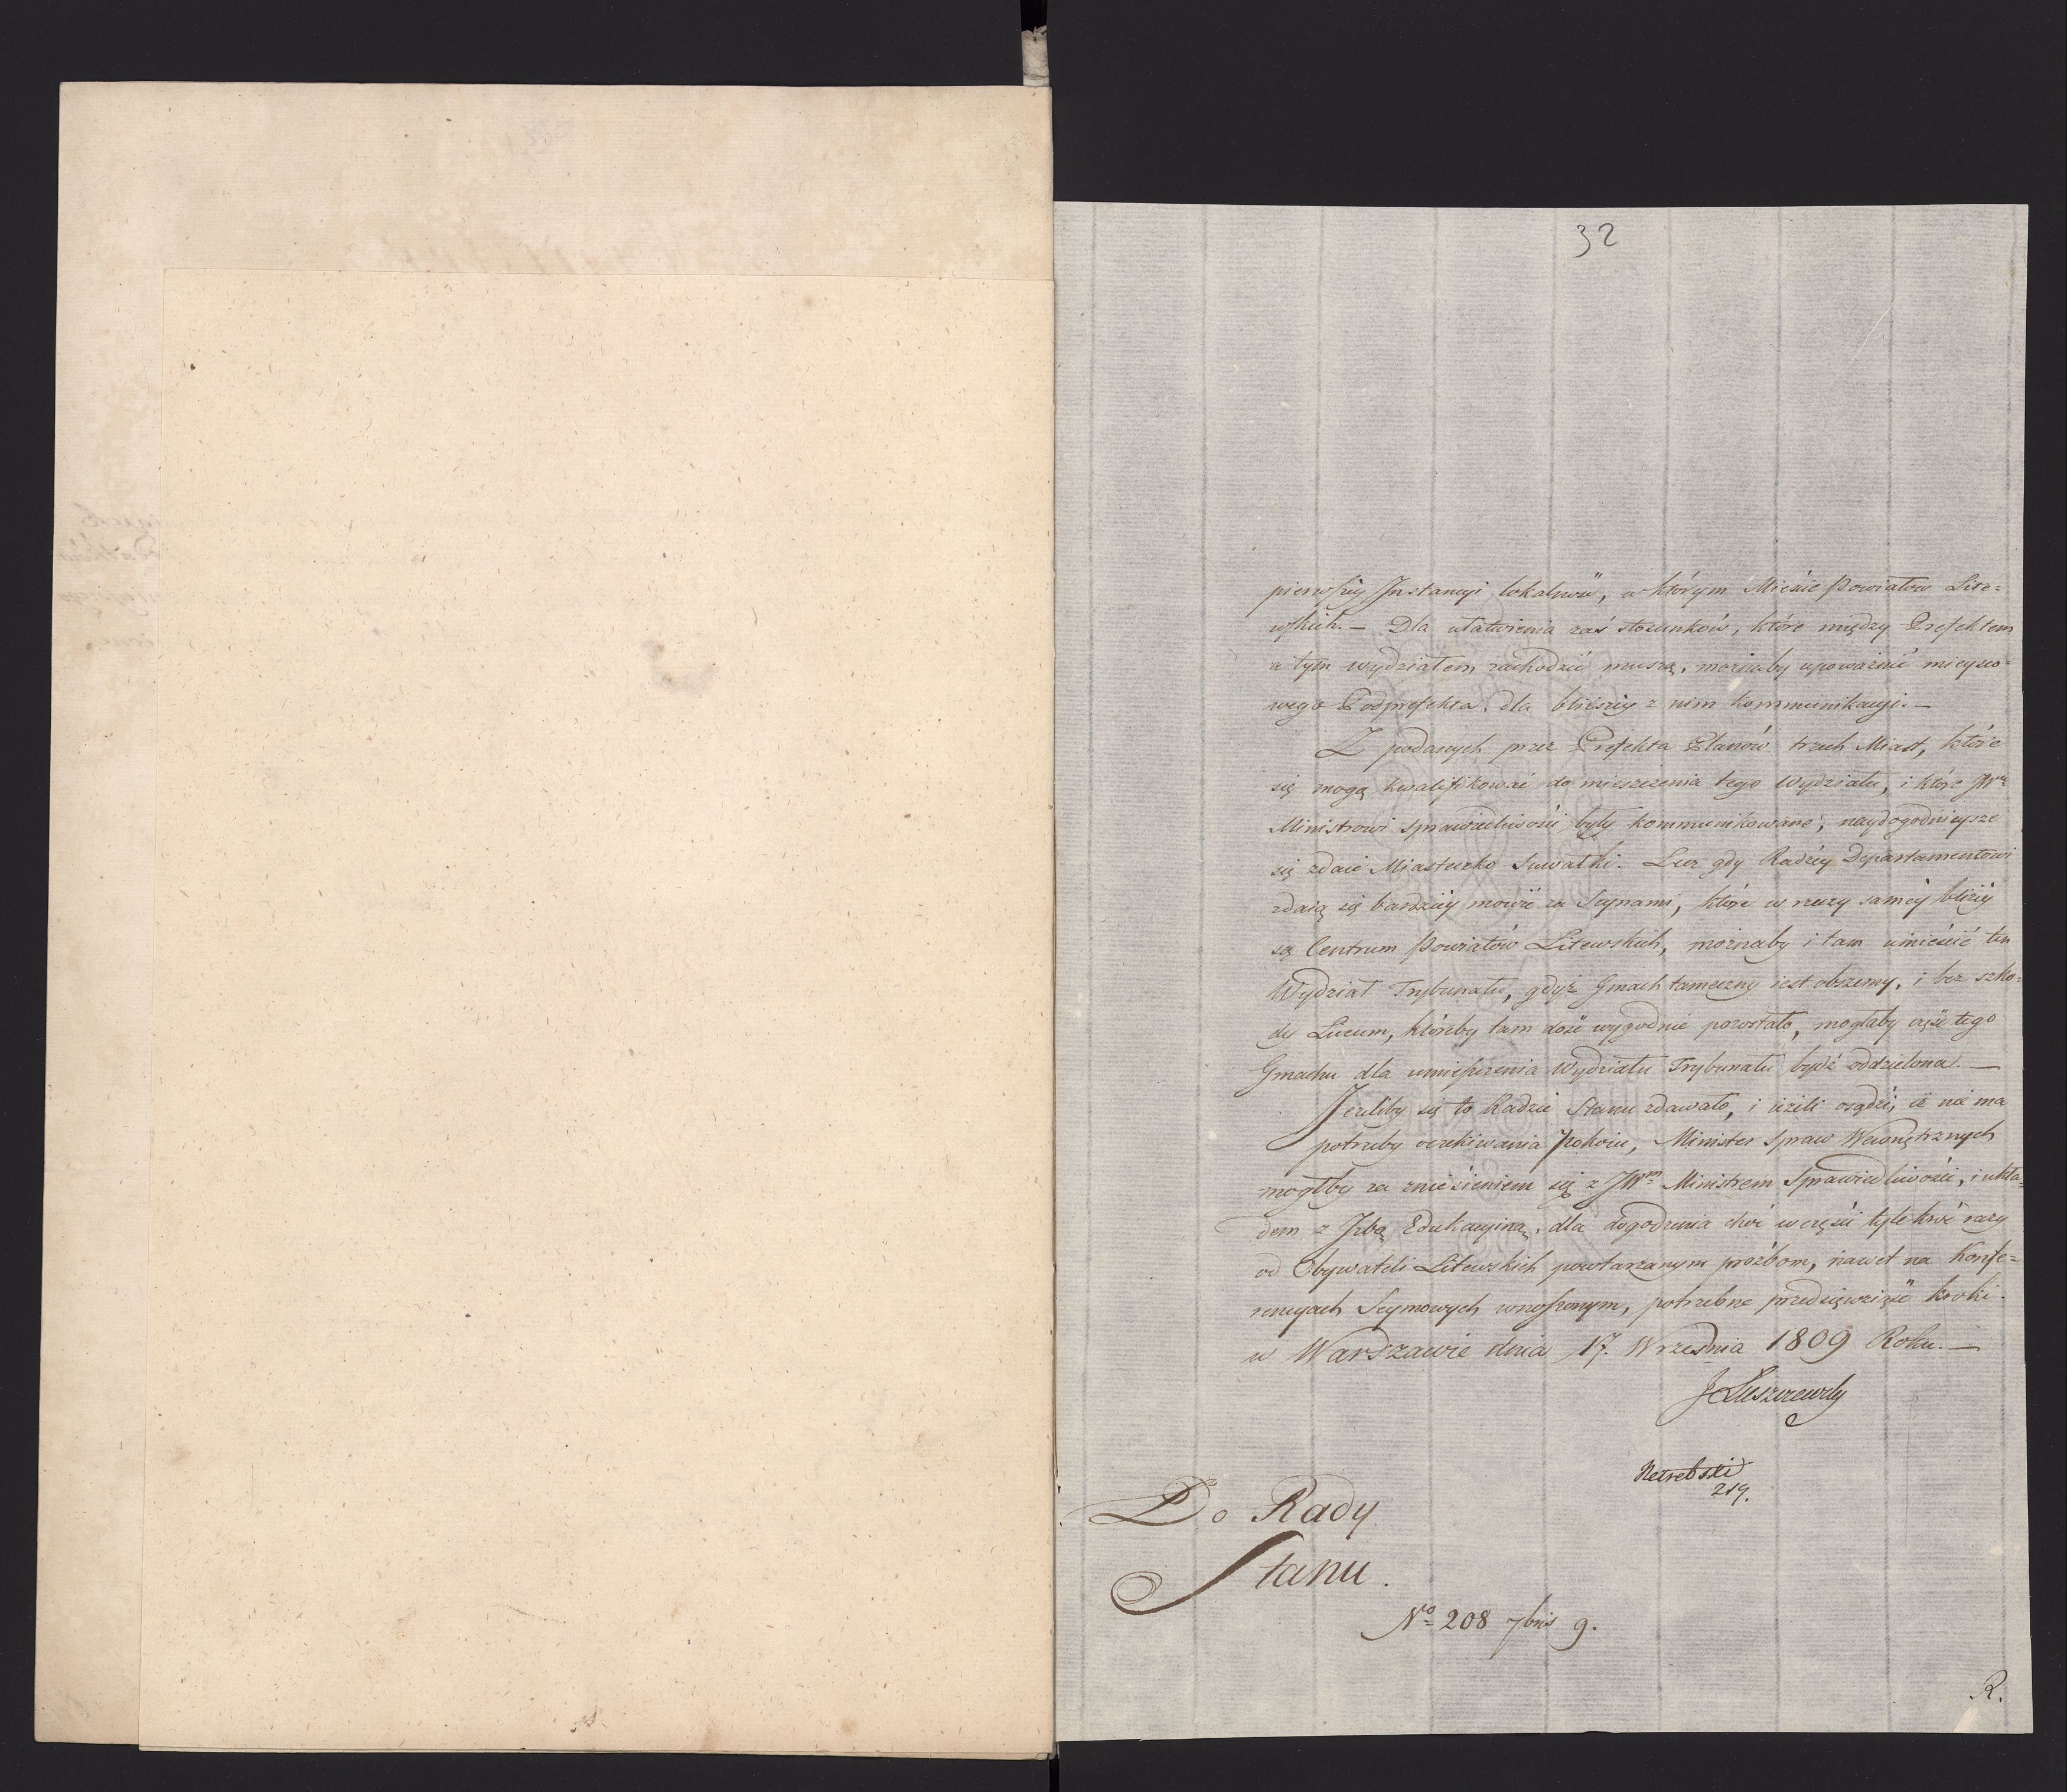 32
pierwszey Instancyi lokalność, w którym Mieście Powiatów Lite=
wskich. — Dla ułatwienia zaś stosunków, które między Prefektem
a tym wydziałem zachodzić muszą, możnaby upoważnić mieysco=
wego Podprefekta, dla bliższey z nim kommunikacyi. —
Z podanych przez Prefekta Planów trzech Miast, które
się mogą kwalifikować do mieszczenia tego Wydziału, i które JWu
Ministrowi sprawiedliwości były kommunikowane, naydogodnieysze
się zdaie Miasteczko Suwałki. Lecz gdy Radzcy Departamentowi
zdaią się bardziéy mówić za Seynami, które w rzeczy saméy bliżéy
są Centrum Powiatów Litewskich, możnaby i tam umieścić ten
Wydział Trybunału, gdyż Gmach tameczny iest obszerny, i bez szko=
dy Liceum, któreby tam dość wygodnie pozostało, mogłaby część tego
Gmachu dla umieszczenia Wydziału Trybunału bydź oddzielona. —
Jeżeliby się to Radzie Stanu zdawało, i ieżeli osądzi, iż nie ma
potrzeby oczekiwania Pokoiu, Minister Spraw Wewnętrznych
mógłby za zniesieniem się z JWm Ministrem Sprawiedliwości, i ukła=
dem z Izbą Edukacyiną, dla dogodzenia choć w części tylekroć razy
od Obywateli Litewskich powtarzanym prozbom, nawet na Konfe=
rencyach Seymowych wnoszonym, potrzebne przedsięwziąść kroki.
w Warszawie dnia 17. Września 1809 Roku. —
J Łuszczewsky
219.
Do Rady
Stanu.
No 208 7bris 9.
R.